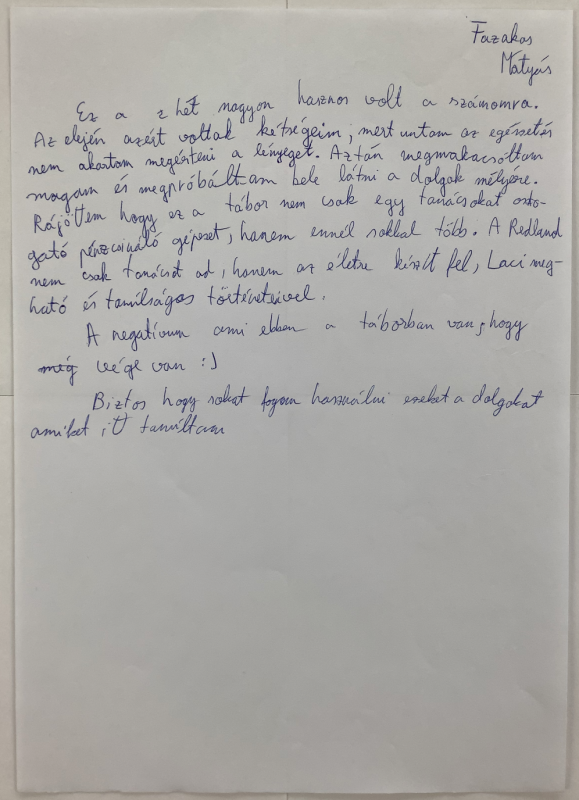 Fazakas
Mátyás
Ez a 2 hét nagyon hasznos volt a számomra.
Az elején azért voltak kétségeim, mert untam az egészet és
nem akartam megérteni a lényeget. Aztán megmakacsóltam
magam és megpróbáltam bele látni a dolgok mélyére.
Rájöttem hogy ez a tábor nem csak egy tanácsokat oszto-
gató pénzcsináló gépezet, hanem ennél sokkal több. A Redland
nem csak tanácsot ad, hanem az életre készít fel, Laci meg-
ható és tanúlságos történeteivel.
A negatívum ami ebben a táborban van, hogy
még vége van :)
Biztos hogy sokat fogom használni ezeket a dolgokat
amiket itt tanúltam